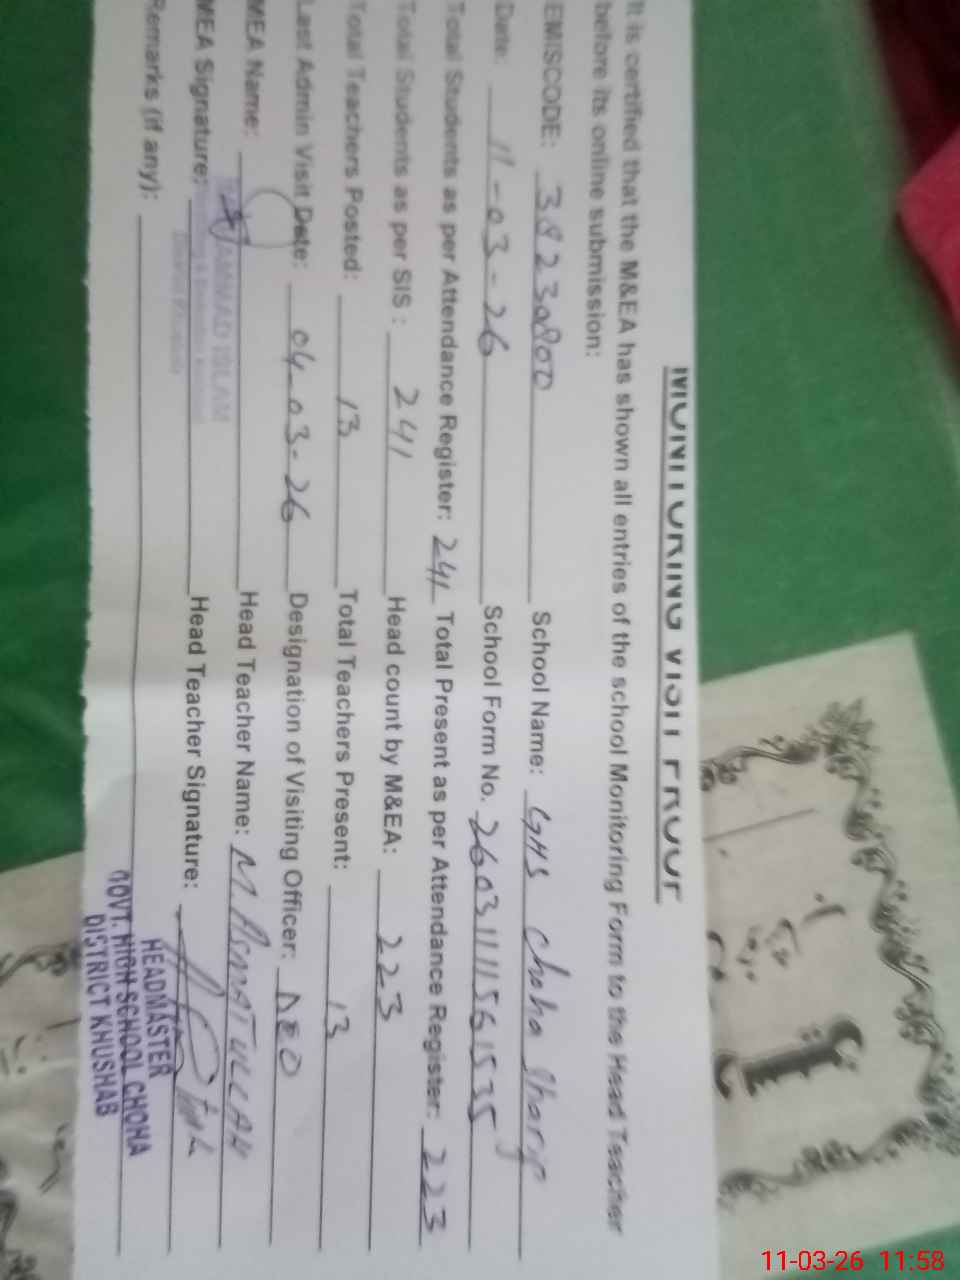 MONITORING VISIT PROOF
It is certified that the M&EA has shown all entries of the school Monitoring Form to the Head Teacher
before its online submission:
EMISCODE: 38230800 School Name: GHS Choha
Date: 11-03-26 School Form No. 2603111561535
Total Students as per Attendance Register: 241 Total Present as per Attendance Register: 223
Total Students as per SIS : 241 Head count by M&EA: 223
Total Teachers Posted: 13 Total Teachers Present: 13
Last Admin Visit Date: 04-03-26 Designation of Visiting Officer: DEO
MEA Name: Head Teacher Name: M. ASMATULLAH
MEA Signature: AMMAD ISLAM Head Teacher Signature:
Remarks (if any):
HEADMASTER
GOVT. HIGH SCHOOL CHOHA
DISTRICT KHUSHAB
11-03-26 11:58